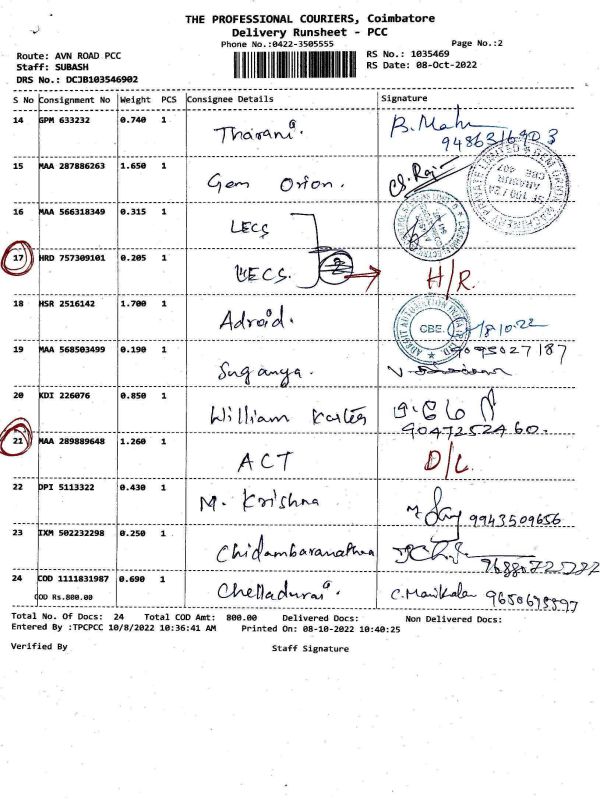 THE PROFESSIONAL COURIERS, Coimbatore
Delivery Runsheet - PCC
Phone No.:0422-3505555
Page No.:2
Route: AVN ROAD PCC
RS No.: 1035469
Staff: SUBASH
RS Date: 08-Oct-2022
DRS No.: DCJB103546902
S No Consignment No Weight PCS Consignee Details Signature
14 GPM 633232 0.740 1 Tharani B. Mah
9486316903
15 MAA 287886263 1.650 1 Gem Orion.
SF 109 / 2A ARASUR CBE 407
16 MAA 566318349 0.315 1 LECS
17 HRD 757309101 0.205 1 LECS. 2 H/R.
18 HSR 2516142 1.700 1 Adroid. CBE. 8.10.22
19 MAA 568503499 0.190 1 Suganya. 9095027187
20 KDI 226076 0.850 1 William
9047252460.
21 MAA 289889648 1.260 1 ACT D/L
22 DPI 5113322 0.430 1 M. Krishna 9943509656
23 IXM 502232298 0.250 1
24 COD 1111831987 0.690 1 Chelladurai C. Manikalan
COD Rs.800.00
Total No. Of Docs: 24 Total COD Amt: 800.00 Delivered Docs: Non Delivered Docs:
Entered By :TPCPCC 10/8/2022 10:36:41 AM Printed On: 08-10-2022 10:40:25
Verified By Staff Signature